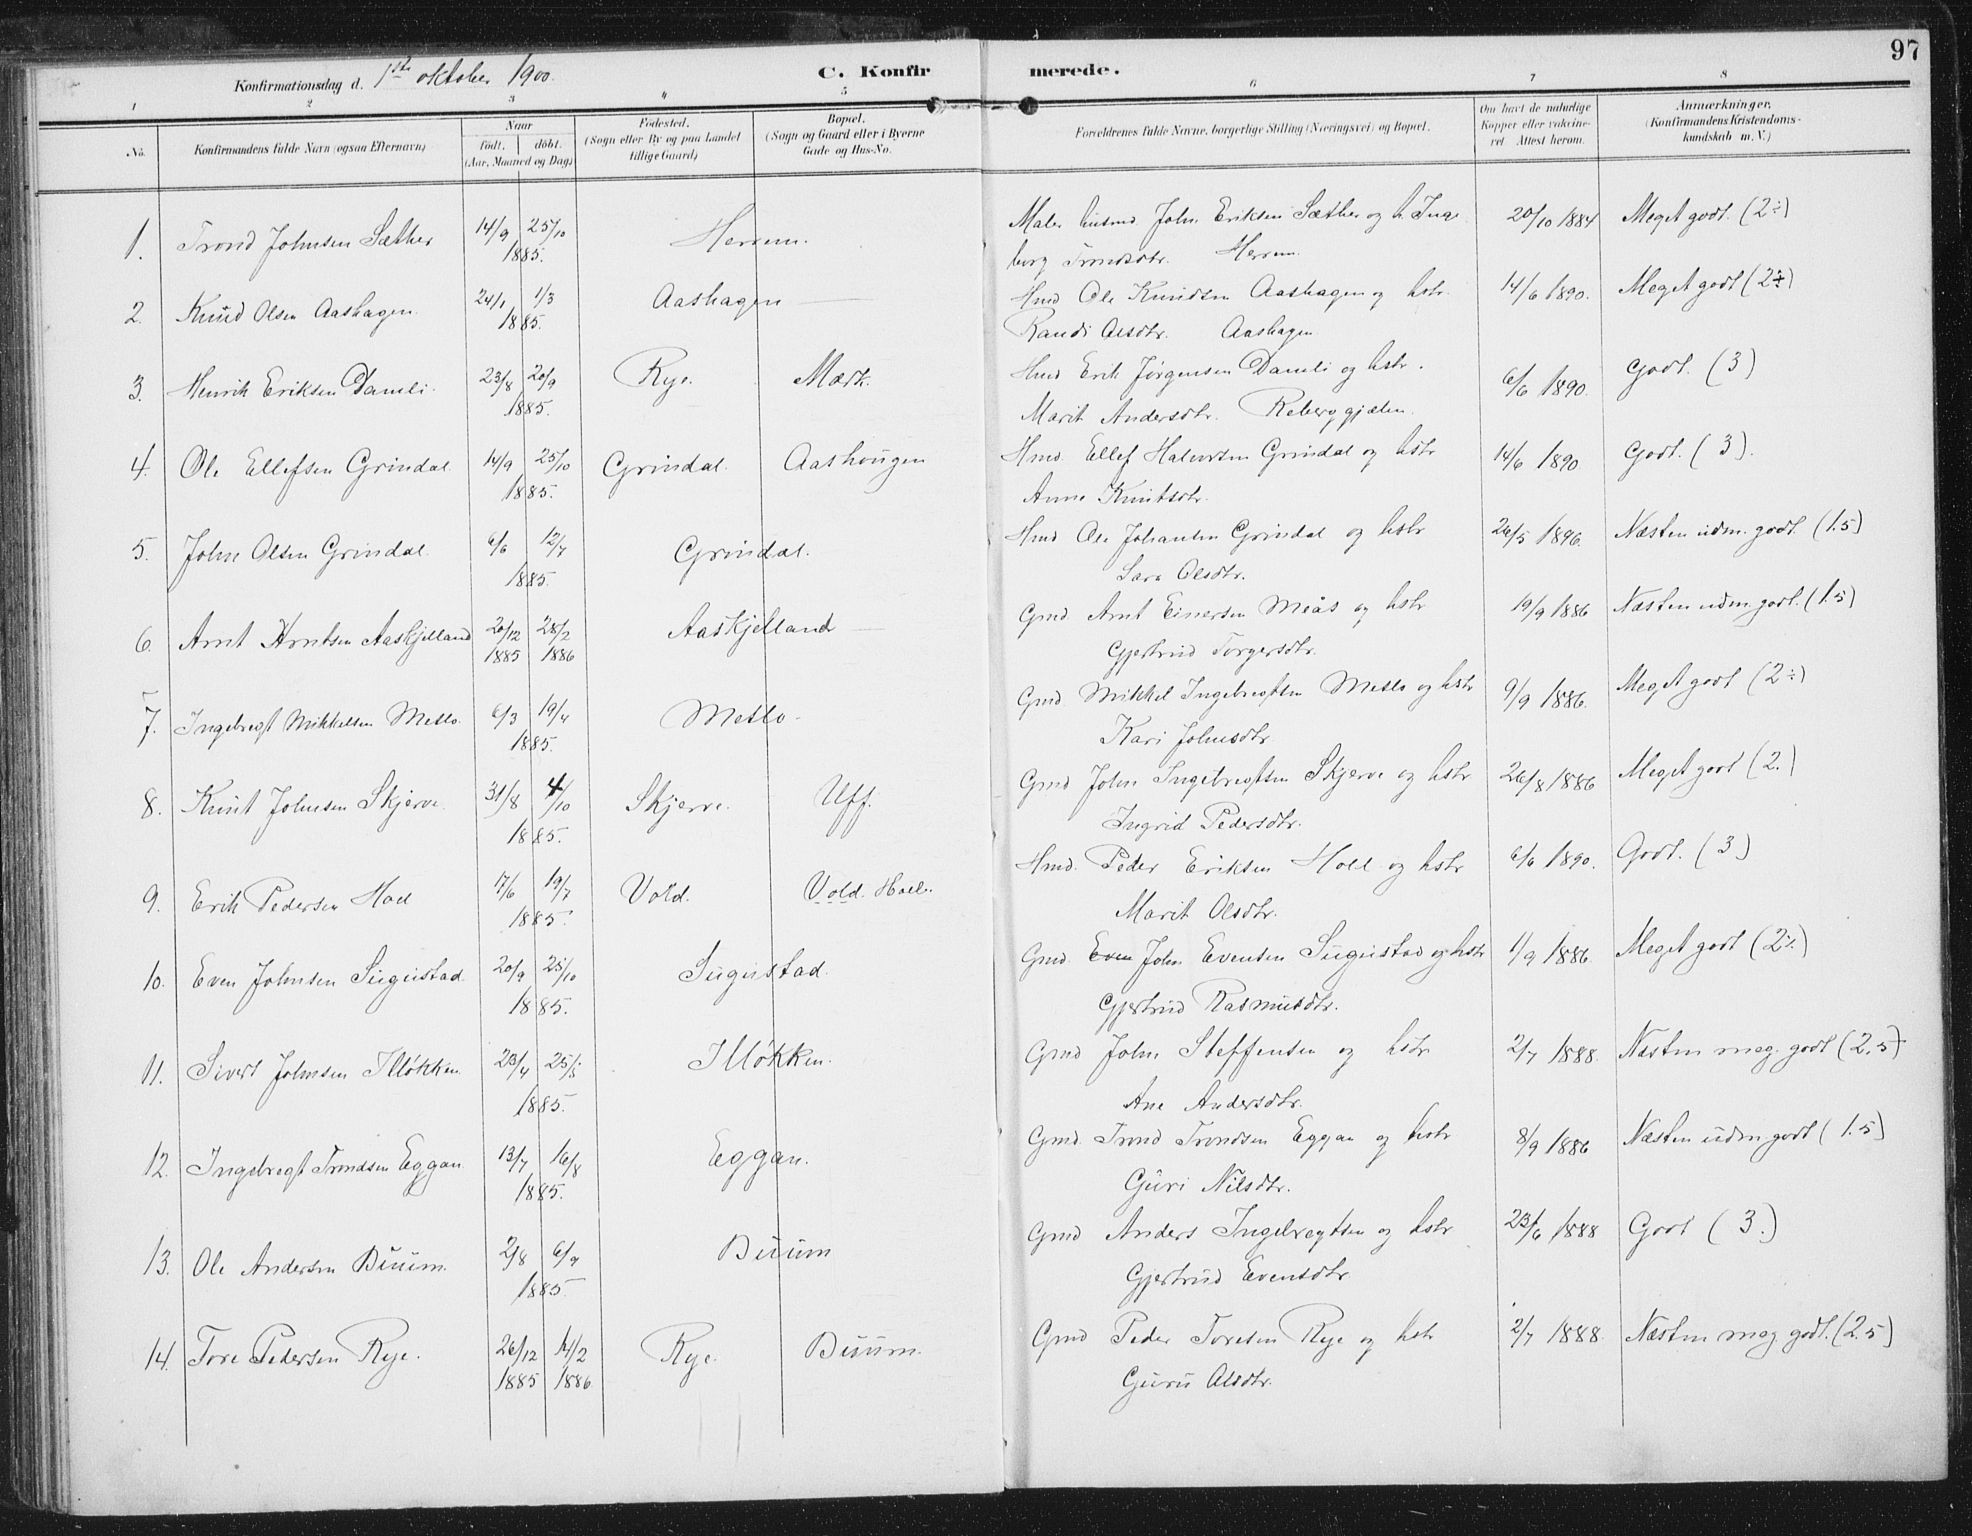 97
Konfirmationsdag d. 1ste oktober 1900. C. Konfirmerede.
1 2 3 4 5 6 7 8
No. Konfirmandens fulde Navn (ogsaa Efternavn) Naar født. døbt. (Aar, Maaned og Dag) Fødested. (Sogn eller By og paa Landet tillige Gaard) Bopæl. (Sogn og Gaard eller i Byerne Gade og Hus-No. Forældrenes fulde Navne, borgerlige Stilling (Næringsvei) og Bopæl. Om havt de naturlige Kopper eller vaccineret. Attest herom. Anmærkninger. (Konfirmandens Kristendomskundskab m. V.)
1. Trond Johnsen Sæther 14/9 25/10 1885. Herrem. Maler husmd John Eriksen Sæther og h. Inge 20/10 1884 Meget godt. (2÷)
borg Trondsdtr. Herrem.
2. Knud Olsen Aashagen. 24/1 1/3 1885. Aashagen Hmd Ole Knudsen Aashagen og hstr. 14/6 1890. Meget godt (2÷)
Randi Olsdtr. Aashagen
3. Henrik Eriksen Damli. 23/8 20/9 1885. Rye. Mærk. Hmd Erik Jørgensen Damli og hstr. 6/6 1890. Godt. (3)
Marit Andersdtr. Reberggjælen.
4. Ole Ellefsen Grindal. 14/9 25/10 1885. Grindal. Aashougen Hmd. Ellef Halvorsen Grindal og hstr 14/6 1890 Godt. (3).
Anne Knutsdtr.
5. John Olsen Grindal. 6/6 12/7 1885. Grindal. Hmd Ole Johansen Grindal og hstr 26/5 1896. Næsten udm. godt. (1.5)
Sara Olsdtr.
6. Arnt Arntsen Aaskjelland 20/12 1885 28/2 1886 Aaskjelland Gmd Arnt Einersen Meås og hstr 19/9 1886 Næsten udm godt. (1.5)
Gjertrud Torgersdtr.
7. Ingebregt Mikkelsen Metlo. 6/3 19/4 1885. Metlo. Gmd. Mikkel Ingebregtsen Metlo og hstr 9/9 1886. Meget godt (2÷)
Kari Johnsdtr
8. Knut Johnsen Skjerve. 31/8 4/10 1885. Skjerve. Uff. Gmd John Ingebregtsen Skjerve og hstr 26/8 1886 Meget godt (2.)
Ingrid Pedersdtr.
9. Erik Pedersen Hoel 17/6 19/7 1885. Vold. Vold. Hoel. Hmd. Peder Eriksen Hoel og hstr 6/6 1890. Godt. (3)
Marit Olsdtr.
10. Even Johnsen Sugustad. 20/9 25/10 1885. Sugustad. Gmd Even John Evensen Sugustad og hstr 1/9 1886. Meget godt (2÷)
Gjertrud Rasmusdtr.
11. Sivert Johnsen Illøkken. 23/4 25/5 1885. Illøkken. Gmd John Steffensen og hstr 2/7 1888. Næsten meg. godt (2.5)
Ane Andersdtr.
12. Ingebregt Trondsen Eggan. 13/7 16/8 1885. Eggan. Gmd. Trond Trondsen Eggan og hstr 8/9 1886 Næsten udm godt (1.5)
Guri Nilsdtr.
13. Ole Andersen Buum. 2/8 6/9 1885. Buum Gmd Anders Ingebregtsen og hstr 23/6 1888 Godt (3.)
Gjertrud Evensdtr
14. Tore Pedersen Rye. 26/12 1885 14/2 1886 Rye. Buum. Gmd Peder Toresen Rye og hstr 2/7 1888. Næsten meg. godt. (2.5)
Guru Olsdtr.